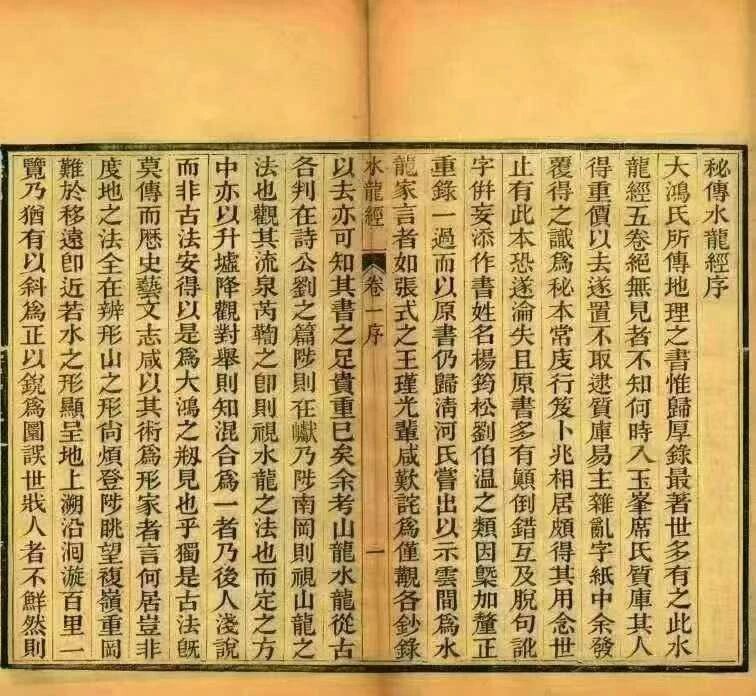 秘傳水龍經序
大鴻氏所傳地理之書惟歸厚錄最著世多有之此水
龍經五卷絕無見者不知何時入玉峯席氏質庫其人
得重價以去遂置不取逮質庫易主雜亂字紙中余發
覆得之識爲秘本常庋行笈卜兆相居頗得其用念世
止有此本恐遂淪失且原書多有顚倒錯互及脫句訛
字倂妄添作書姓名楊筠松劉伯温之類因槩加釐正
重錄一過而以原書仍歸淸河氏嘗出以示雲間爲水
龍家言者如張式之王瑾光輩咸歎詫爲僅觀各鈔錄
水龍經
卷一序
一
以去亦可知其書之足貴重已矣余考山龍水龍從古
各判在詩公劉之篇陟則在巘乃陟南岡則視山龍之
法也觀其流泉芮鞫之卽則視水龍之法也而定之方
中亦以升墟降觀對舉則知混合爲一者乃後人淺說
而非古法安得以是爲大鴻之剏見也乎獨是古法旣
莫傳而歷史藝文志咸以其術爲形家者言何居豈非
度地之法全在辨形山之形尙煩登陟眺望複嶺重岡
難於移遠卽近若水之形顯呈地上溯沿洄漩百里一
覽乃猶有以斜爲正以銳爲圓誤世戕人者不鮮然則